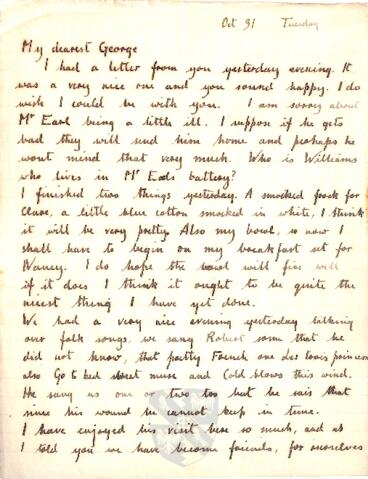 Oct 31 Tuesday
My dearest George
I had a letter from you yesterday evening. It
was a very nice one and you sound happy. I do
wish I could be with you. I am sorry about
Mr Earl being a little ill. I suppose if he gets
bad they will send him home and perhaps he
wont mind that very much. Who is Williams
who lives in Mr battery?
I finished two things yesterday. A smocked frock for
Clare, a little blue cotton smocked in white, I think
it will be very pretty. Also my bowl, so now I
shall have to begin on my breakfast set for
Nancy. I do hope the bowl will fire well
if it does I think it ought to be quite the
nicest thing I have yet done.
We had a very nice evening yesterday talking
over folk songs, we sang Robert some that he
did not know, that pretty French one des trois princesses
also Go to bed sweet muse and Cold blows this wind.
He sang us one or two too but he says that
since his wound he cannot keep in tune.
I have enjoyed his visit here so much, and as
I told you we have become friends, for ourselves